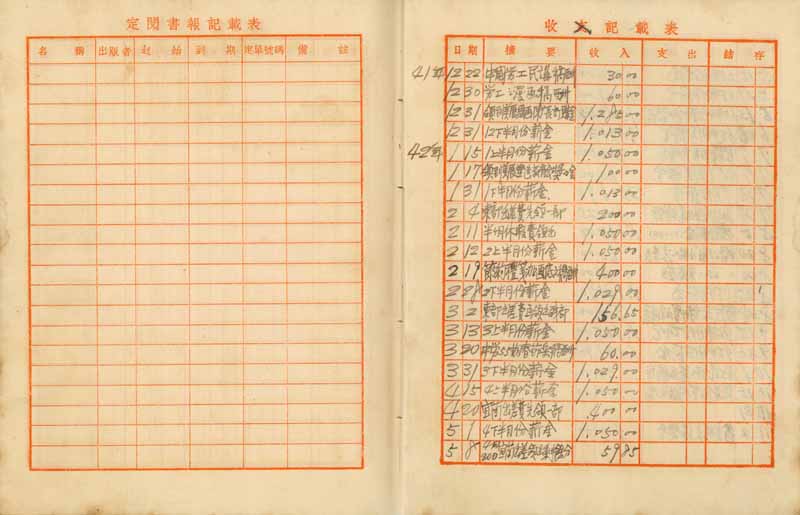 定閱書報記載表
名 稱 出版者 起 始 到 期 定單號碼 備 註
收支記載表
日期 摘要 收入 支出 結存
41年 12 22 中國勞工民 稿酬 30.00
12 30 勞工漫画稿酬 60.00
12 31 1.285.00
12 31 12下半月份薪金 1.013.00
42年 1 15 1上半月份薪金 1.050.00
1 17 100.00
1 31 1下半月份薪金 1.013.00
2 4 東部出差費先領一部 200.00
2 11 半月休假費 1.050.00
2 12 2上半月份薪金 1.050.00
2 19 400.00
2 28 2下半月份薪金 1.029.00
3 2 東部出差費 部 156.65
3 13 3上半月份薪金 1.050.00
3 20 稿酬 60.00
3 31 3下半月份薪金 1.029.00
4 15 4上半月份薪金 1.050.00
4 20 出差費先領一部 400.00
5 1 4下半月份薪金 1.050.00
5 8 59.85